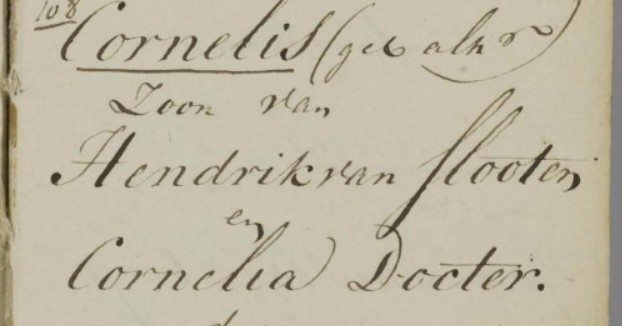 108
Cornelis (geb alhr)
Zoon van
Hendrik van Slooten
en
Cornelia Docter.